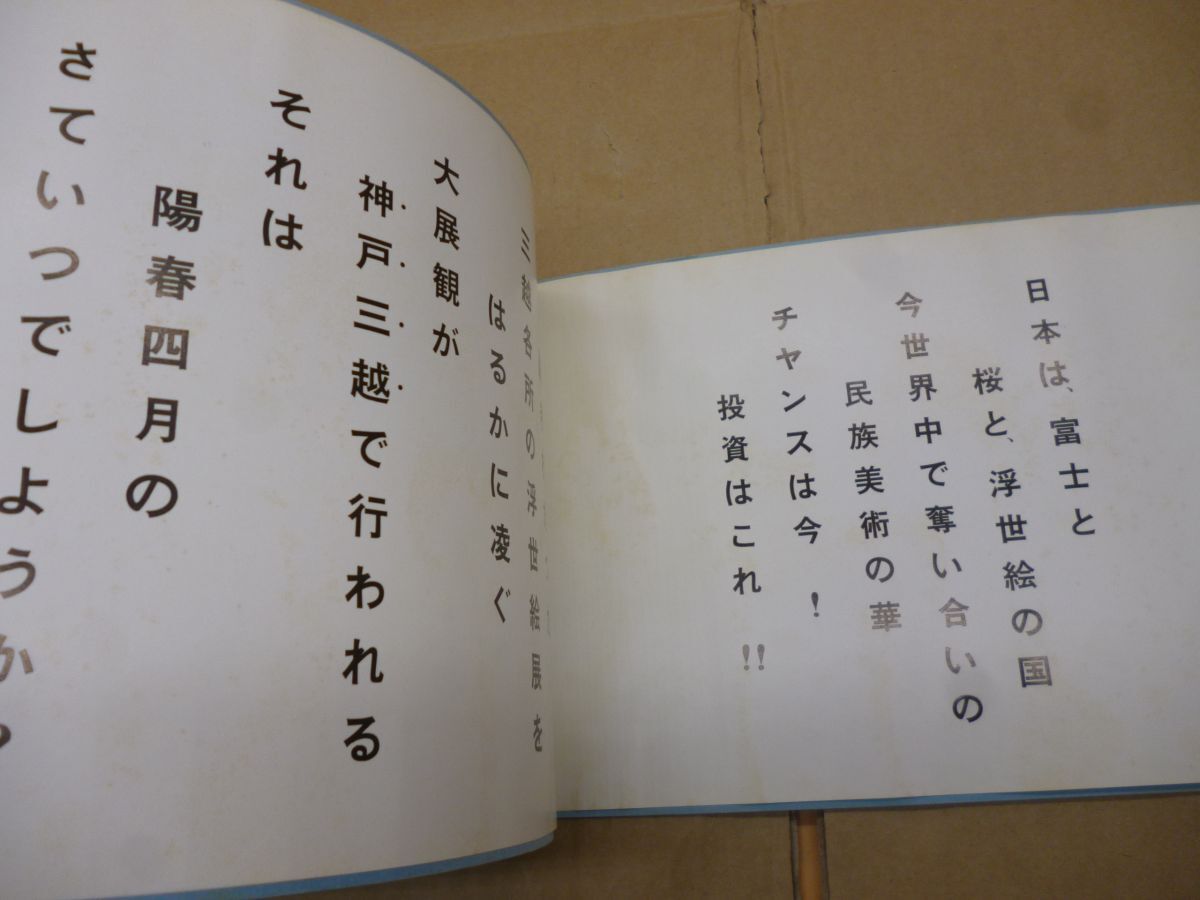 日本は、富士と
桜と、浮世絵の国
今世界中で奪い合いの
民族美術の華
チャンスは今！
投資はこれ!!
三越名所の浮世絵展を
はるかに凌ぐ
大展観が
神戸三越で行われる
それは
陽春四月の
さていつでしようか？